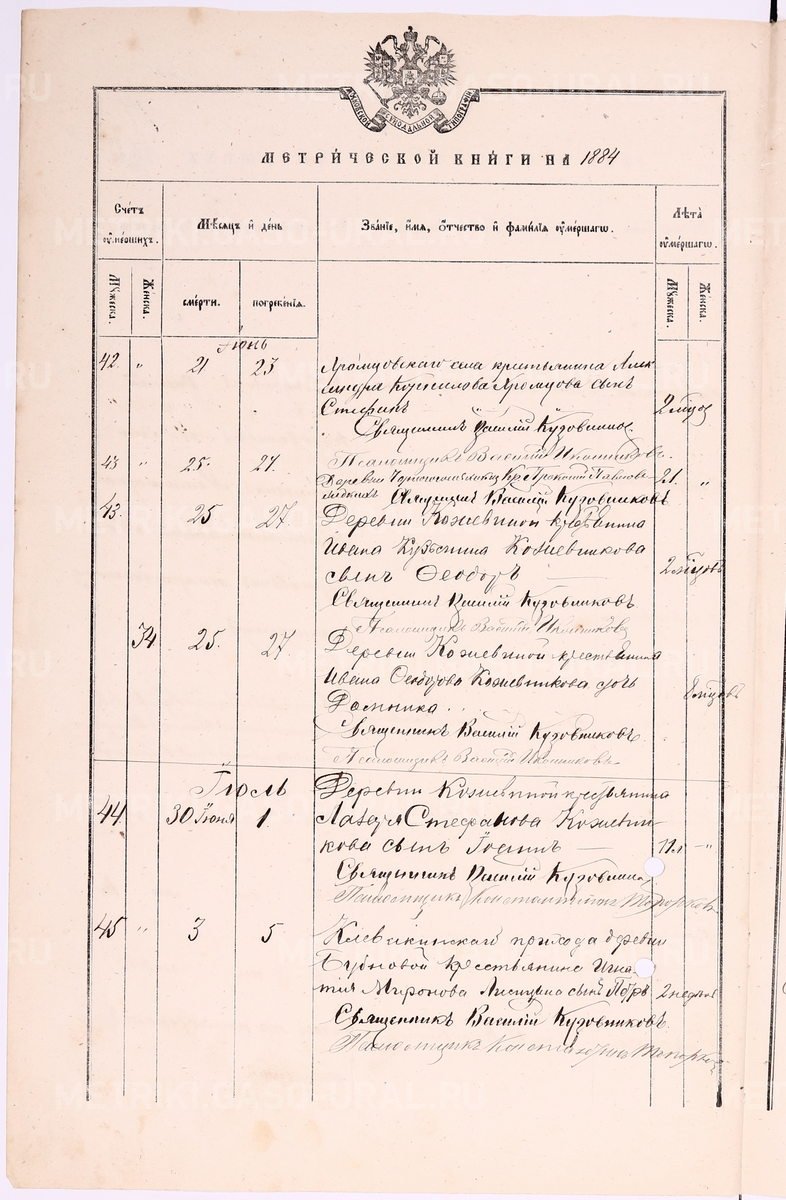 ДУХОВНОЙ СУНОДАЛЬНОЙ ТИПОГРАФІИ
МЕТРИ́ЧЕСКОЙ КНИ́ГИ НА 1884
Сче́тъ оуме́ршихъ.
Мѣ́сяцъ и҆ де́нь
Зва́ніе, и҆́мя, ѻ҆́тчество и҆ фами́лія оуме́ршагѡ.
Лѣ́та оуме́ршагѡ.
Мꙋ́жеска.
Же́нска.
сме́рти.
погребе́нія.
Мꙋ́жеска.
Же́нска.
Іюнь
42 " 21 23 Яромцовскаго села крестьянина Алек
сандра Корнилова Яромцова сынъ
Стефанъ 2 мѣсяц
Священникъ Василій Кузовников
43 " 25 27 Псаломщикъ Василій Иконниковъ
Деревни 21 "
Священникъ Василій Кузовниковъ
43. 25 27 Деревни Кожевиной крестьянина
Ивана Кузьмина Кожевникова
сынъ Ѳеодоръ 2 мѣсяцовъ
Священникъ Василій Кузовниковъ
Псаломщикъ Василій Иконниковъ
34 25. 27 Деревни Кожевиной крестьянина
Ивана Ѳеодорова Кожевникова дочь
Домника. мѣсяцовъ
Священникъ Василій Кузовниковъ.
Псаломщикъ Василій Иконниковъ
Іюль Деревни Кожевиной крестьянина
44 30 Іюня 1. Лазаря Стефанова Кожевни-
кова сынъ "
Священникъ Василій Кузовников
Псаломщикъ Константинъ Топорковъ
45 " 3 5 Клевакинскаго прихода деревни
Бубновой крестьянина Игна
тія Миронова Лисицына сынъ Петръ 2 недѣли
Священникъ Василій Кузовниковъ.
Псаломщикъ Константинъ Топорков
METRIKI.GASO-URAL.RU